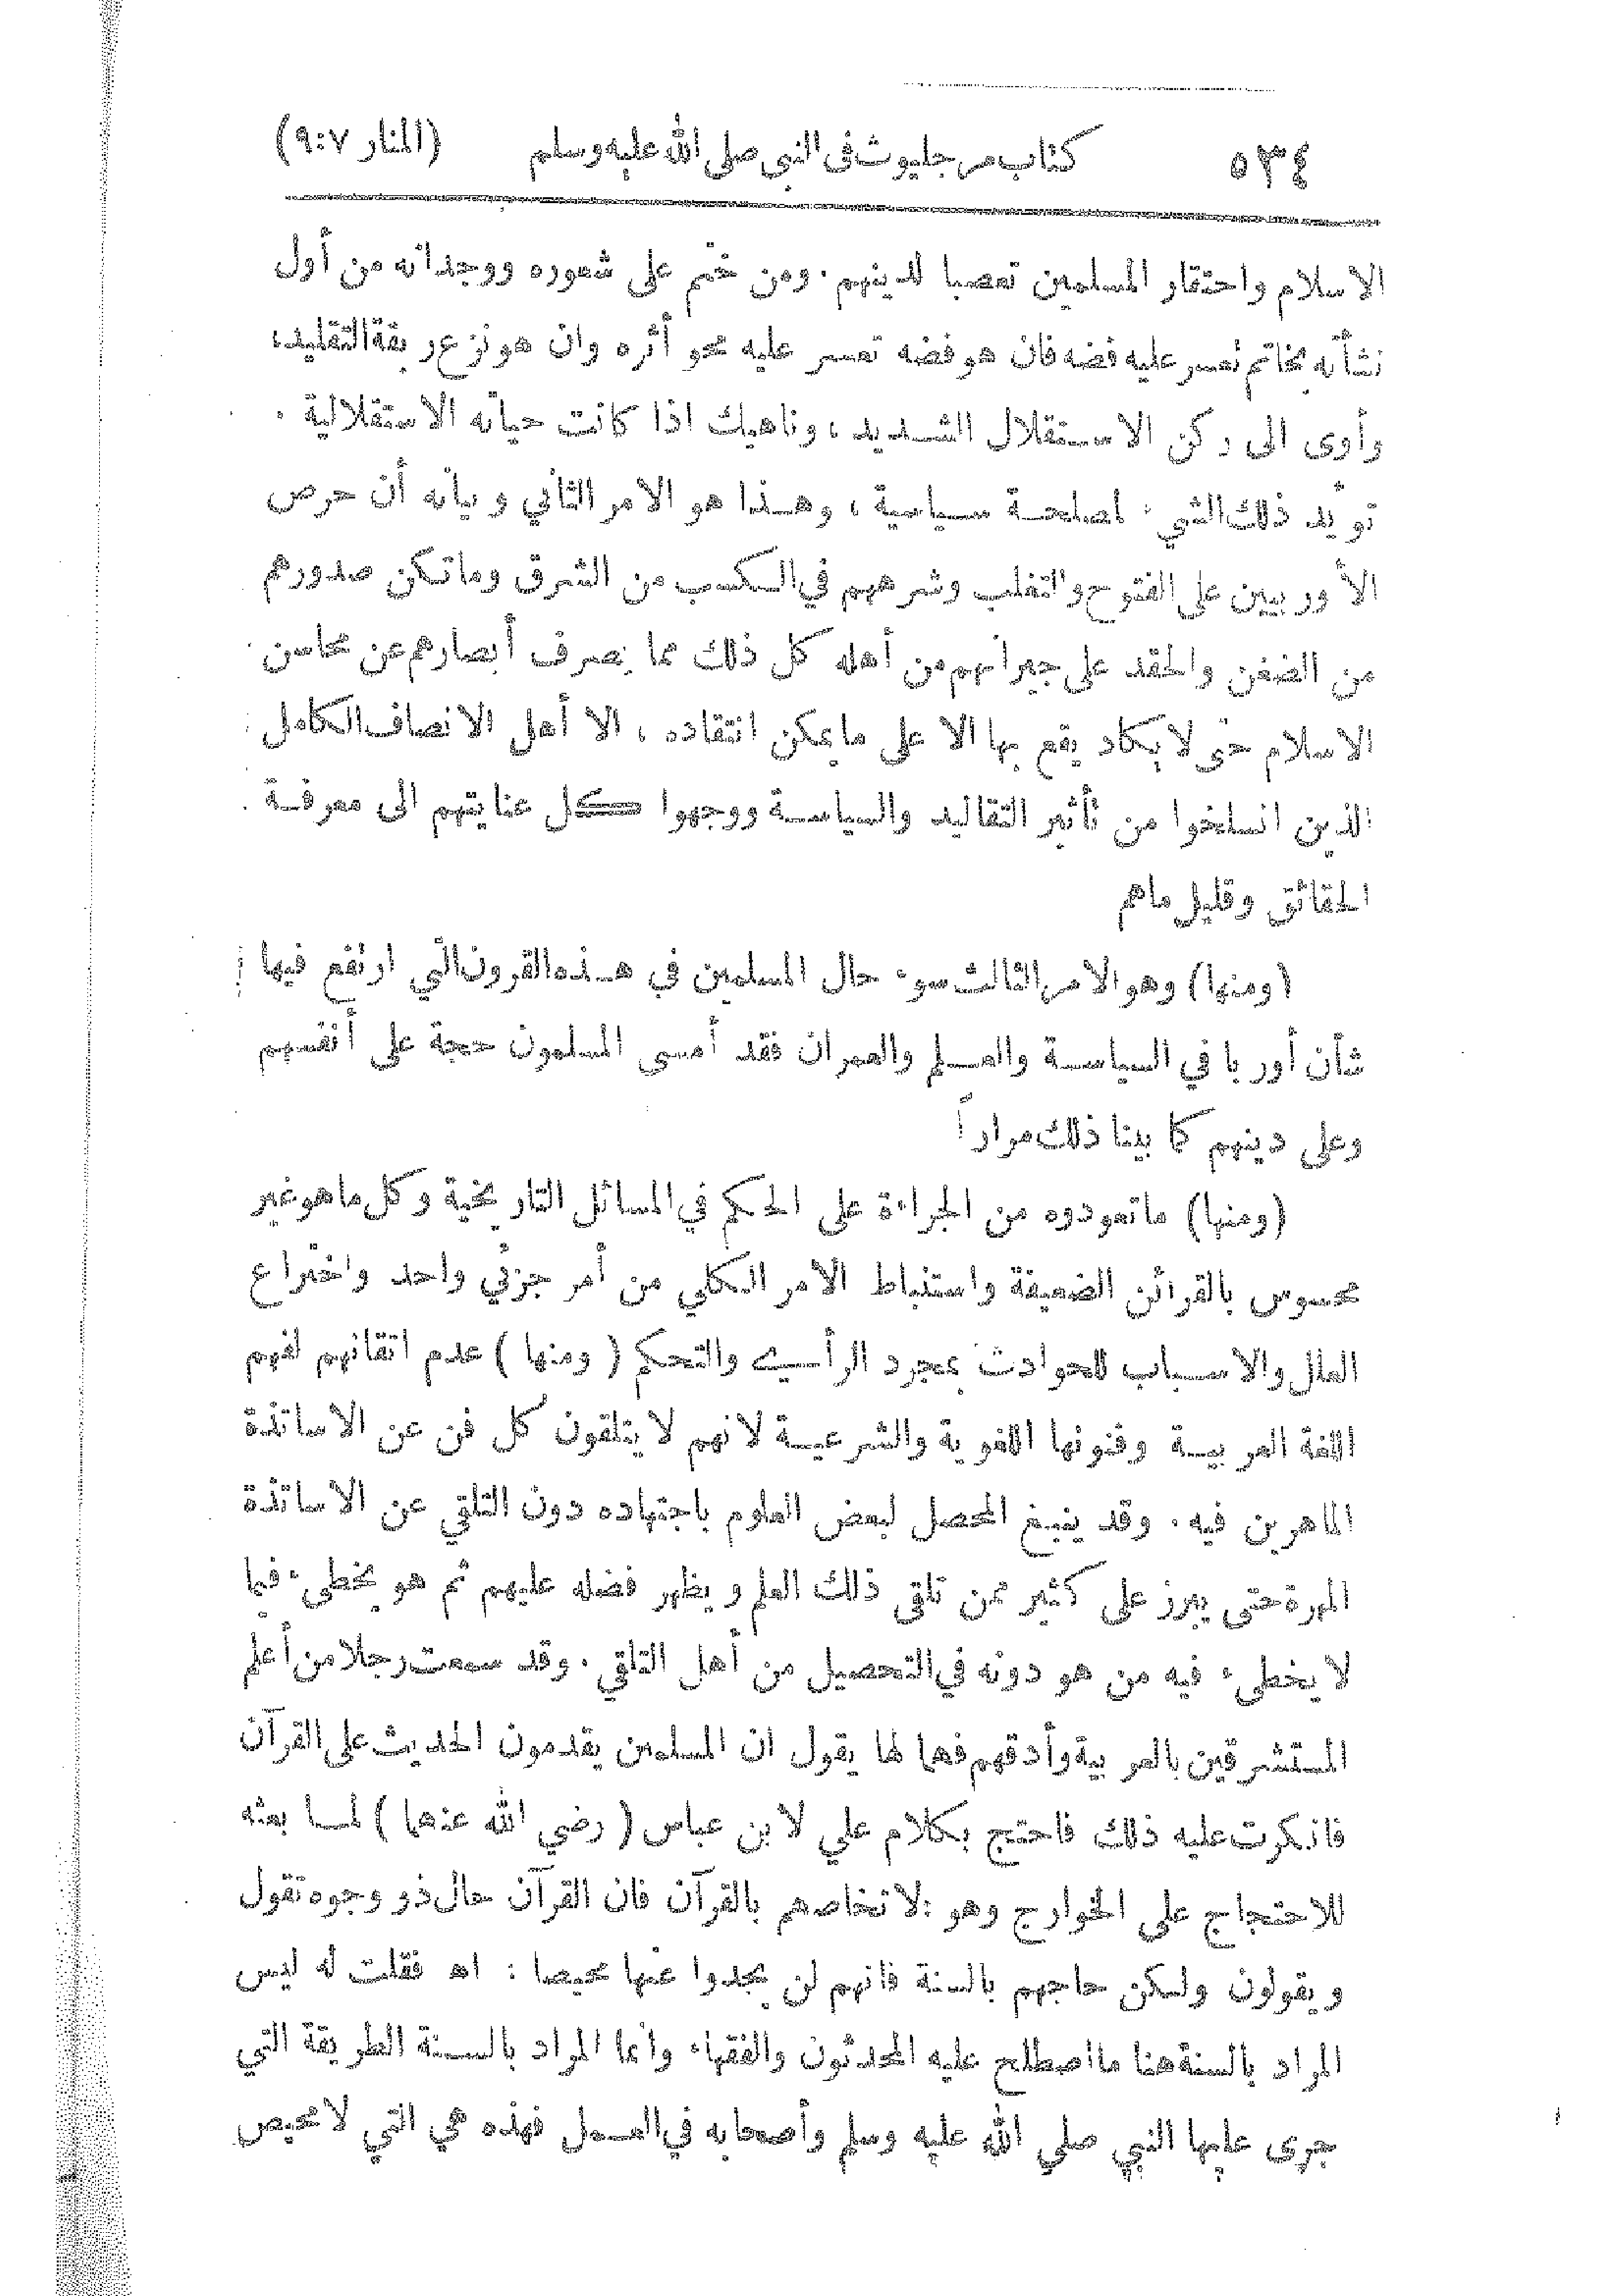 ٥٣٤ كتاب مرجليوث في النبي صلى الله عليه وسلم (المنار ٩:٧)
الاسلام واحتقار المسلمين تعصبا لدينهم. ومن ختم على شعوره ووجدانه من أول
نشأته بخاتم تعسر عليه فضه فان هو فضه تعسر عليه محو أثره وان هو نزع ربقة التقليد،
وأوى الى ركن الاستقلال الشديد، وناهيك اذا كانت حياته الاستقلالية.
تؤيد ذلك الشيء لمصلحة سياسية، وهذا هو الامر الثاني وبيانه أن حرص
الأوربيين على الفتوح والتغلب وشرههم في الكسب من الشرق وما تكن صدورهم
من الضغن والحقد على جيرانهم من أهله كل ذلك مما يصرف أبصارهم عن محاسن
الاسلام حتى لا يكاد يقع بها الا على ما يمكن انتقاده، الا أهل الانصاف الكامل
الذين انسلخوا من تأثير التقاليد والسياسة ووجهوا كل عنايتهم الى معرفة
الحقائق وقليل ماهم
(ومنها) وهو الامر الثالث سوء حال المسلمين في هذه القرون التي ارتفع فيها
شأن أوربا في السياسة والعلم والعمران فقد أمسى المسلمون حجة على أنفسهم
وعلى دينهم كما بينا ذلك مراراً
(ومنها) ماتعودوه من الجراءة على الحكم في المسائل التاريخية وكل ماهو غير
محسوس بالقرائن الضعيفة واستنباط الامر الكلي من أمر جزئي واحد واختراع
العلل والاسباب للحوادث بمجرد الرأي والتحكم (ومنها) عدم اتقانهم لفهم
اللغة العربية وفنونها اللغوية والشرعية لانهم لا يتلقون كل فن عن الاساتذة
الماهرين فيه. وقد ينبغ المحصل لبعض العلوم باجتهاده دون التلقي عن الاساتذة
المهرة حتى يبرز على كثير ممن تلقى ذلك العلم ويظهر فضله عليهم ثم هو يخطىء فيما
لا يخطىء فيه من هو دونه في التحصيل من أهل التلقي. وقد سمعت رجلا من أعلم
المستشرقين بالعربية وأدقهم فهما لها يقول ان المسلمين يقدمون الحديث على القرآن
فانكرت عليه ذلك فاحتج بكلام علي لابن عباس (رضي الله عنهما) لما بعثه
للاحتجاج على الخوارج وهو: لا تخاصمهم بالقرآن فان القرآن حمال ذو وجوه تقول
ويقولون ولكن حاجهم بالسنة فانهم لن يجدوا عنها محيصا: اه فقلت له ليس
المراد بالسنة هنا ما اصطلح عليه المحدثون والفقهاء وانما المراد بالسنة الطريقة التي
جرى عليها النبي صلى الله عليه وسلم وأصحابه في العمل فهذه هي التي لا محيص